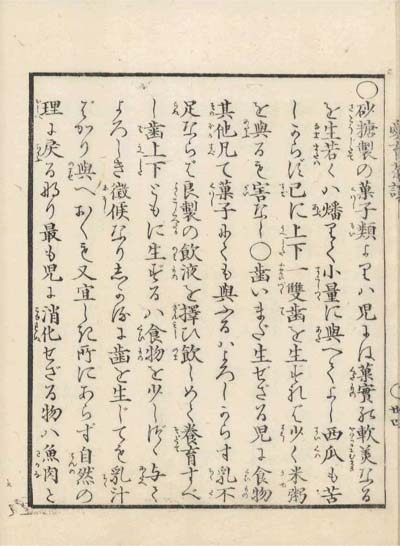 ○砂糖製の菓子類よりハ児には菓實の軟美なる
を生若くハ燔りて小量に與へてよし西瓜も苦
しからず已に上下一雙歯を生ずれば少く米粥
を與るも害なし○歯いまだ生ぜざる児に食物
其他凡て菓子にても與ふるハよろしからず乳不
足ならば良製の飲液を擇び飲しめて養育すべ
し歯上下ともに生ずるハ食物を少しづゝ与て
よろしき徴候なり然るに歯を生じても乳汁
ばかり與へおくも又宜しき所にあらず自然の
理に戻る也最も児に消化せざる物ハ魚肉と